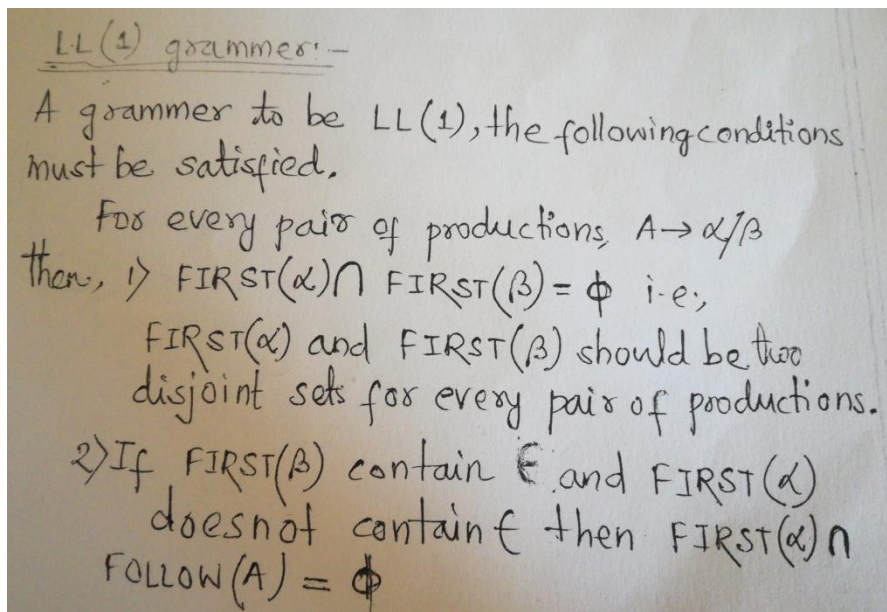 LL(1) grammer:-
A grammer to be LL(1), the following conditions
must be satisfied.
For every pair of productions, A→ α/β
then, 1) FIRST(α)∩ FIRST(β) = ϕ i.e;,
FIRST(α) and FIRST(β) should be two
disjoint sets for every pair of productions.
2) If FIRST(β) contain ϵ and FIRST(α)
doesnot contain ϵ then FIRST(α)∩
FOLLOW(A) = ϕ